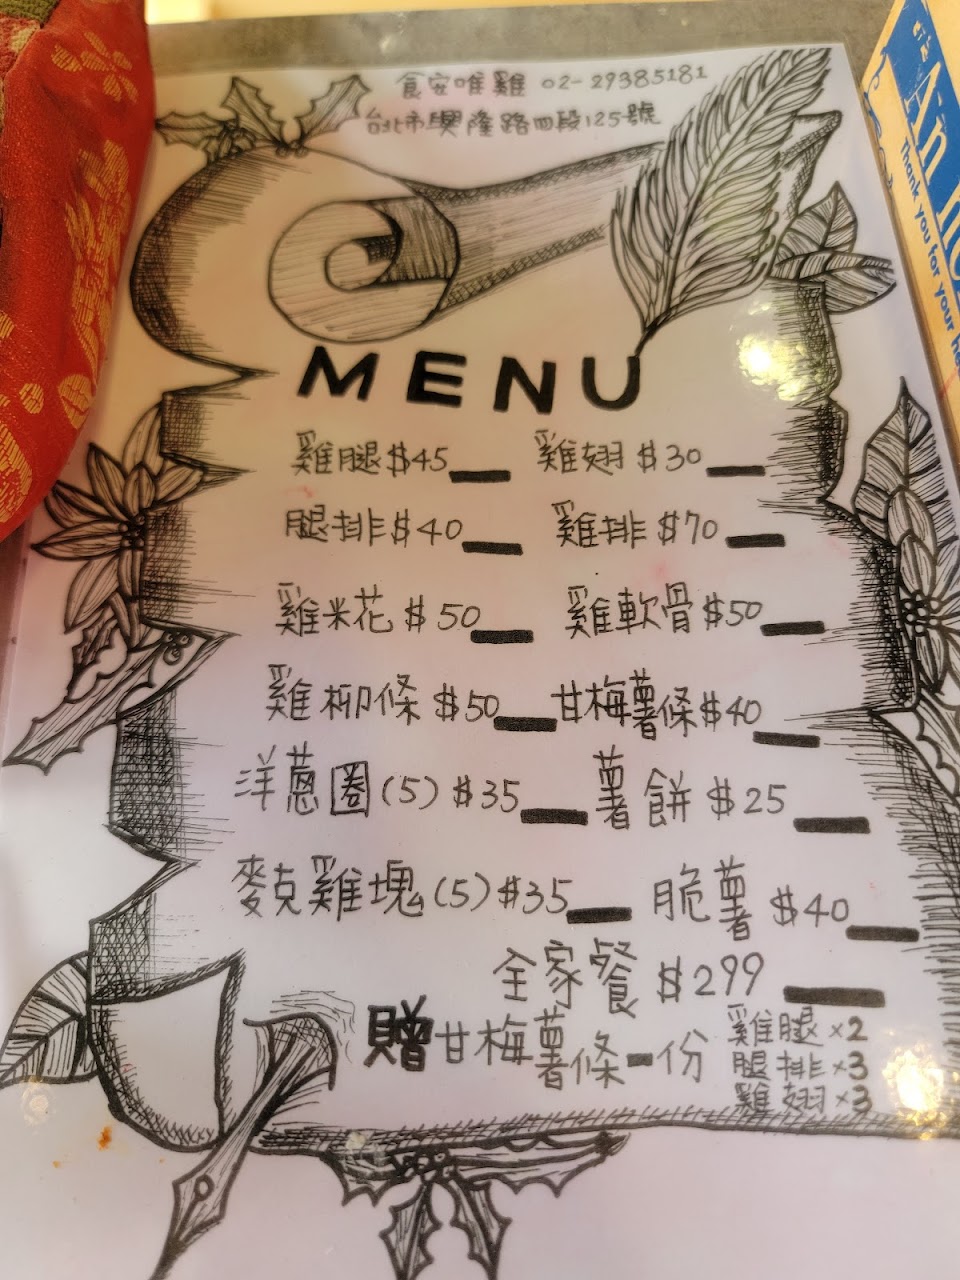 食安唯雞 02-29385181
台北市興隆路四段125號
MENU
雞腿$45 雞翅$30
腿排$40 雞排$70
雞米花$50 雞軟骨$50
雞柳條$50 甘梅薯條$40
洋蔥圈(5)$35 薯餅$25
麥克雞塊(5)$35 脆薯$40
全家餐$299
贈甘梅薯條一份
雞腿x2
腿排x3
雞翅x3
An
Thank you for your